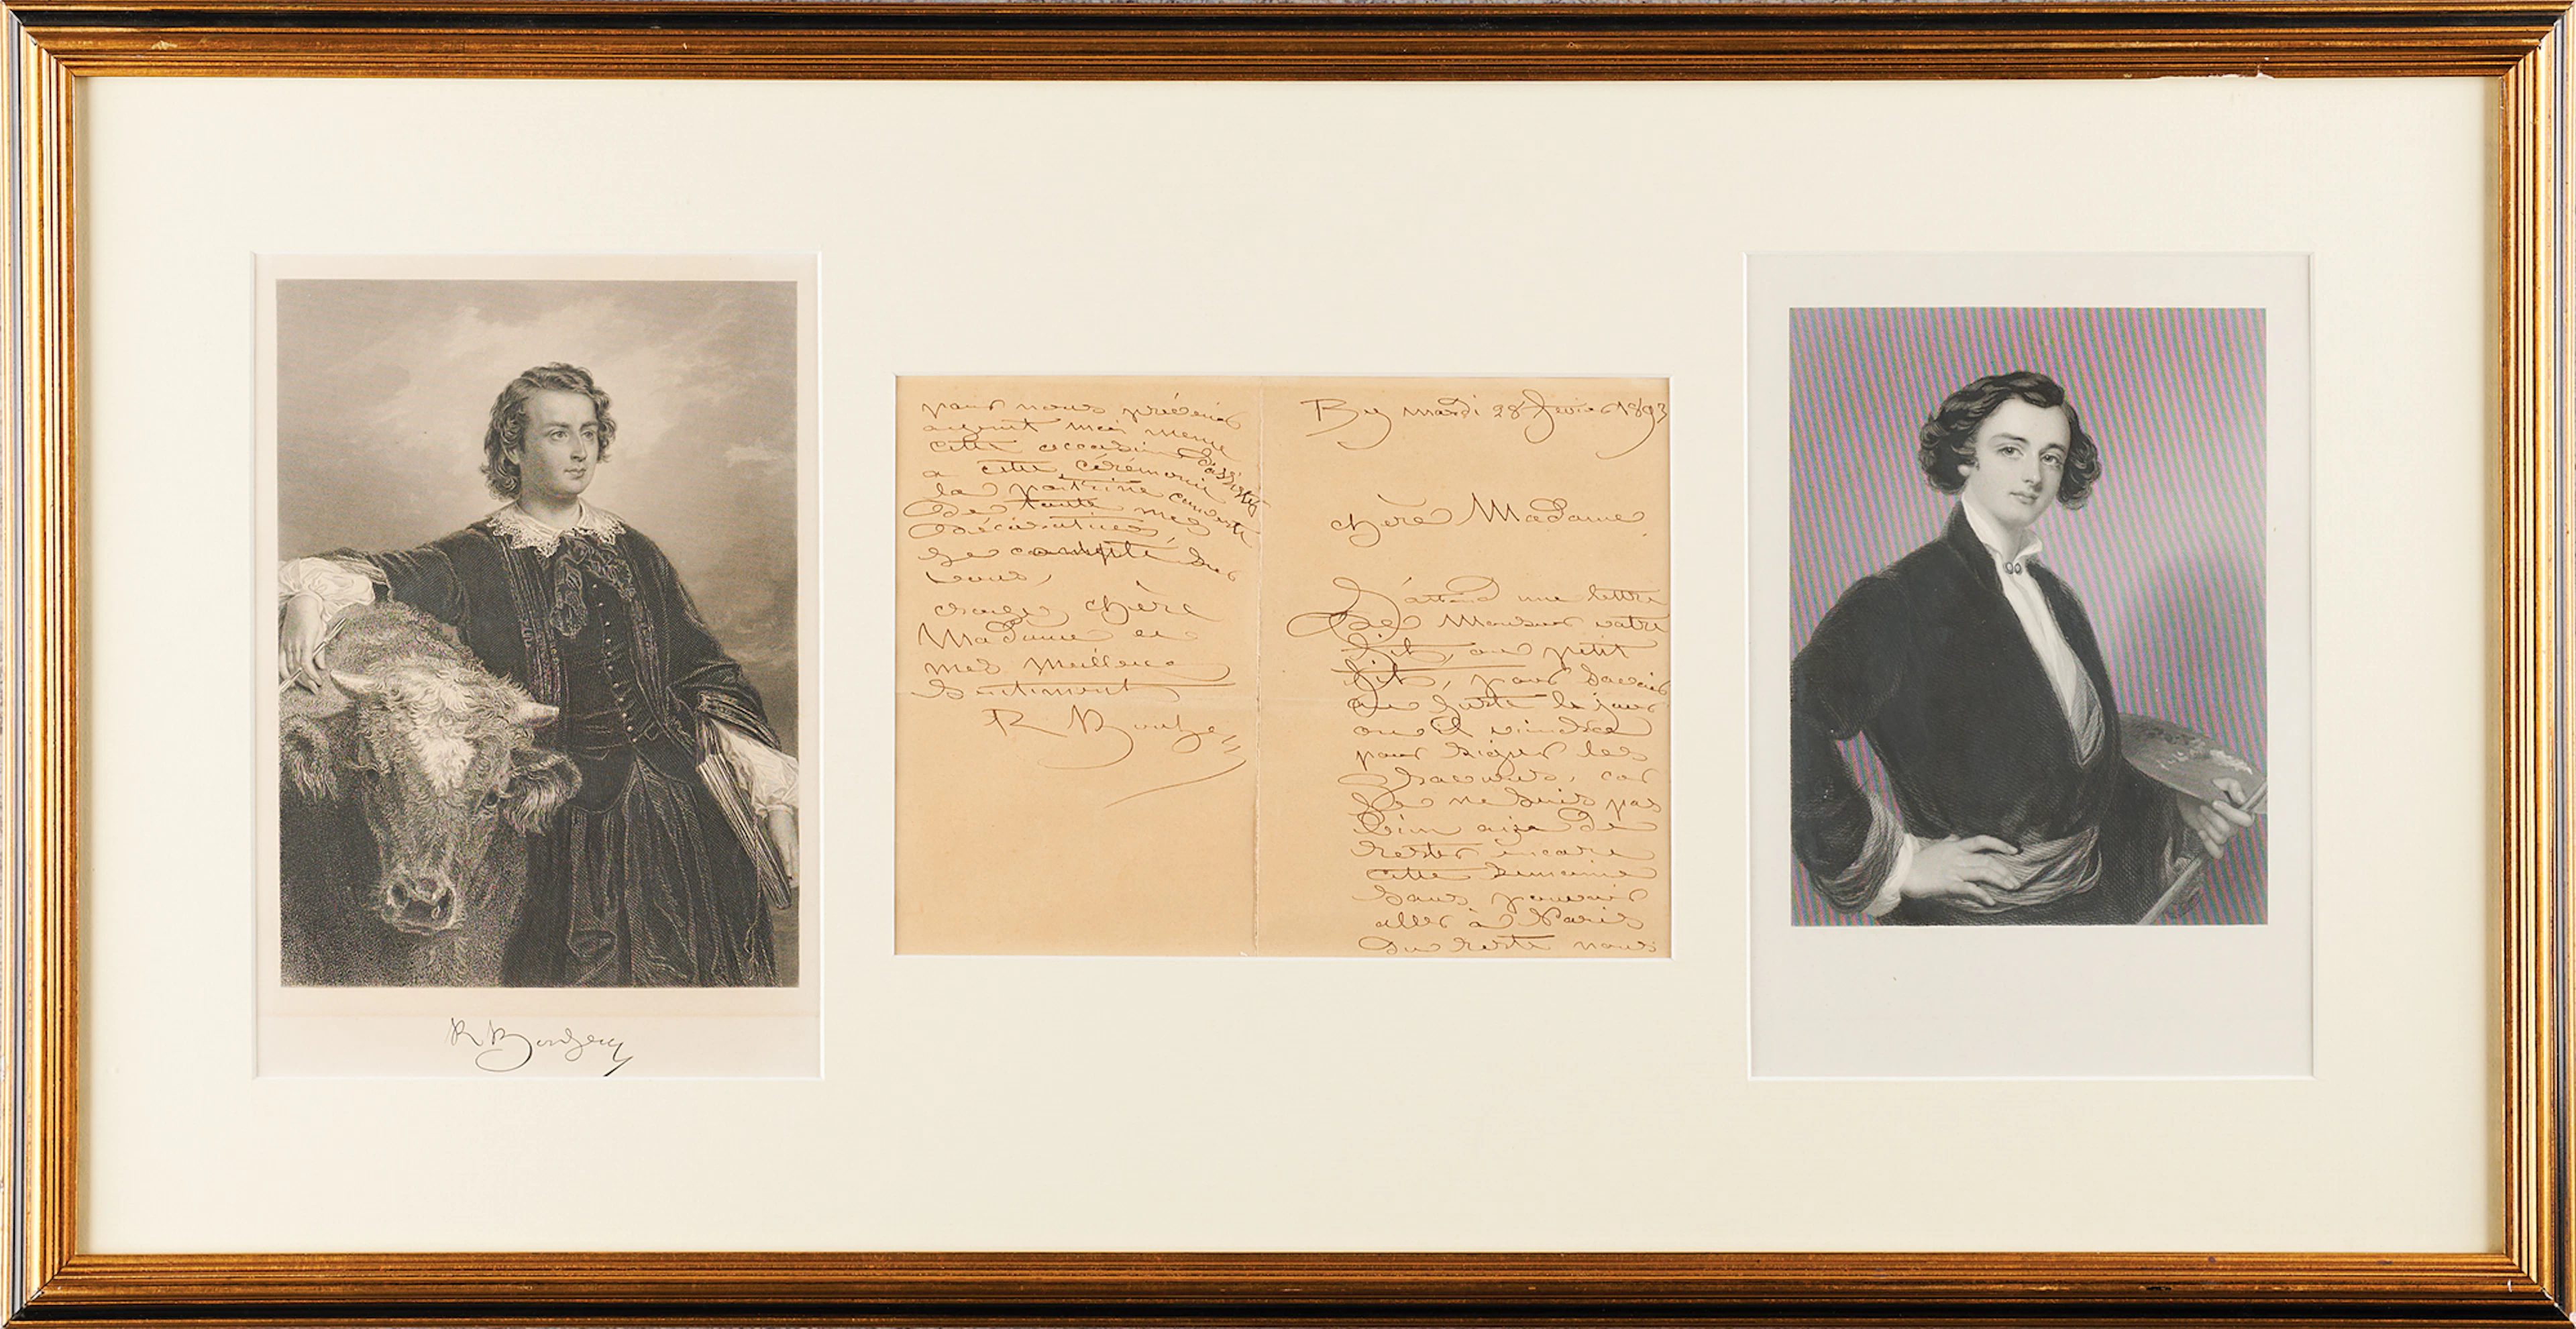 By mardi 28 fevrier 1893
chère Madame
J'attend une lettre
de Monsieur votre
fils, ou petit
fils, pour savoir
au juste le jour
ou il viendra
pour signer les
car
Je ne suis pas
bien aize de
rester encore
cette semaine
sans pouvoir
aller à Paris
du reste nous
pour nous prévenir
ayant moi meme
cette occasion d'assister
a cette cérémonie
la poitrine couverte
de toute mes
décorations
Je compte sur
vous,
croyez chère
Madame en
mes meilleurs
sentiments
R. Bonheur
R. Bonheur